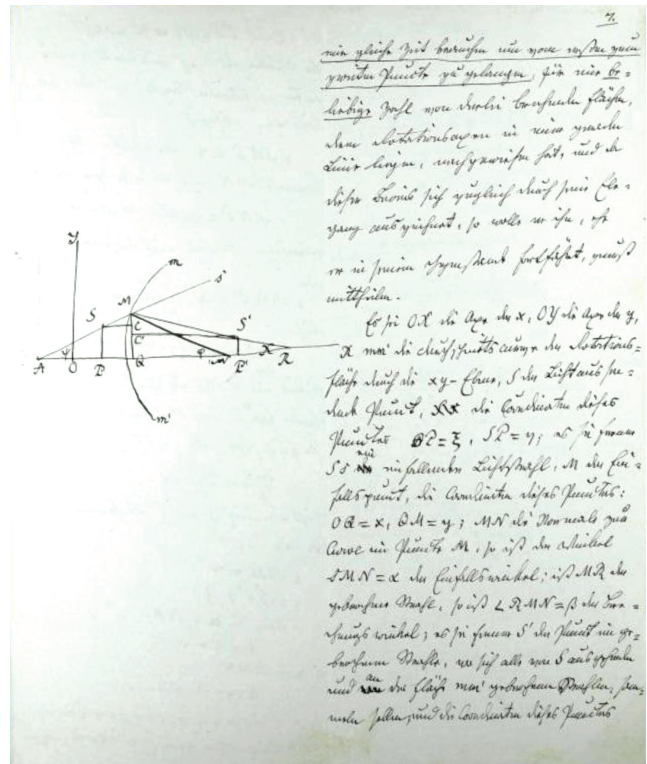 7.
eine gleiche Zeit brauchen um vom ersten zum
zweiten Puncte zu gelangen, für eine be-
liebige Zahl von derlei brechenden Flächen,
deren Rotationsaxen in einer geraden
Linie liegen, nachgewiesen hat, und da
dieser Beweis sich zugleich durch seine Ele-
ganz auszeichnet, so wolle er ihn, ehe
er in seinem fortfährt, zuerst
mittheilen.
Es sei OX die Axe der x, OY die Axe der y,
mm' die Durchschnittscurve der Rotations-
fläche durch die xy-Ebene, S der Lichtaussen-
dende Punct, die Coordinaten dieses
Punctes OP=ξ, SP=η; es sei ferner
SS ein einfallender Lichtstrahl, M der Ein-
fallspunct, die Coordinaten dieses Punctes:
OQ=x, QM=y; MN die Normale zur
Curve im Puncte M, so ist der Winkel
SMN=α der Einfallswinkel; ist MR der
gebrochene Strahl, so ist ∠RMN=β der Bre-
chungswinkel; es sei ferner S' der Punct im ge-
brochenen Strahle, wo sich alle von S ausgehenden
und an der Fläche mm' gebrochenen Strahlen, sam-
meln sollen, und die Coordinaten dieses Punctes
Y
m
s
M
S
C
C'
S'
X
A
φ
O
P
Q
φ'
N
P'
R
m'